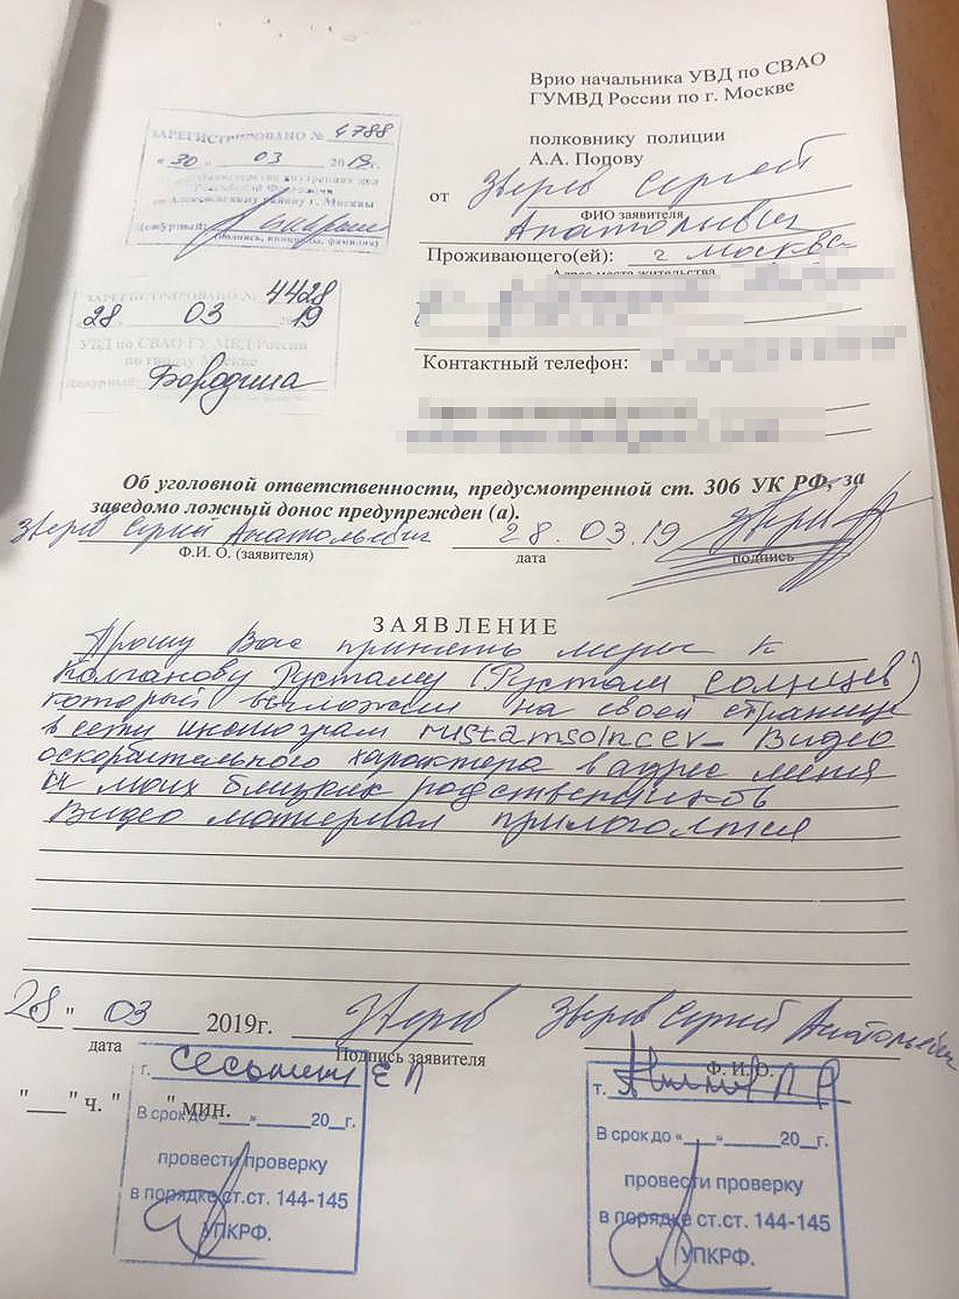 Врио начальника УВД по СВАО
ГУМВД России по г. Москве
полковнику полиции
А.А. Попову
ЗАРЕГИСТРИРОВАНО № 4788
"30" 03 2019г.
Министерства внутренних дел
Российской Федерации
по Алексеевскому району г. Москвы
Дежурный:
(подпись, инициалы, фамилия)
от Зверев Сергей
ФИО заявителя
Анатольевич
Проживающего(ей): г Москва
Адрес места жительства
ЗАРЕГИСТРИРОВАНО № 4428
28 03 2019
УВД по СВАО ГУ МВД России
по городу Москве
Дежурный: Бородина
Контактный телефон:
Об уголовной ответственности, предусмотренной ст. 306 УК РФ, за
заведомо ложный донос предупрежден (а).
Зверев Сергей Анатольевич 28.03.19 Зверев
Ф.И. О. (заявителя) дата подпись
ЗАЯВЛЕНИЕ
Прошу Вас принять меры к
Колганову Рустаму (Рустам Солнцев)
который выложил на своей странице
в сети инстограм rustamsolncev_ Видео
оскорбительного характера в адрес меня
и моих близких родственников
Видео матерьял прилогается
28 " 03 2019г. Зверев Зверев Сергей Анатольевич
дата Подпись заявителя Ф. И. О.
"___" ч. "___" мин.
г.
В срок до «___»______20__г.
провести проверку
в порядке ст.ст. 144-145
УПКРФ.
т.
В срок до «___»______20__г.
провести проверку
в порядке ст.ст. 144-145
УПКРФ.